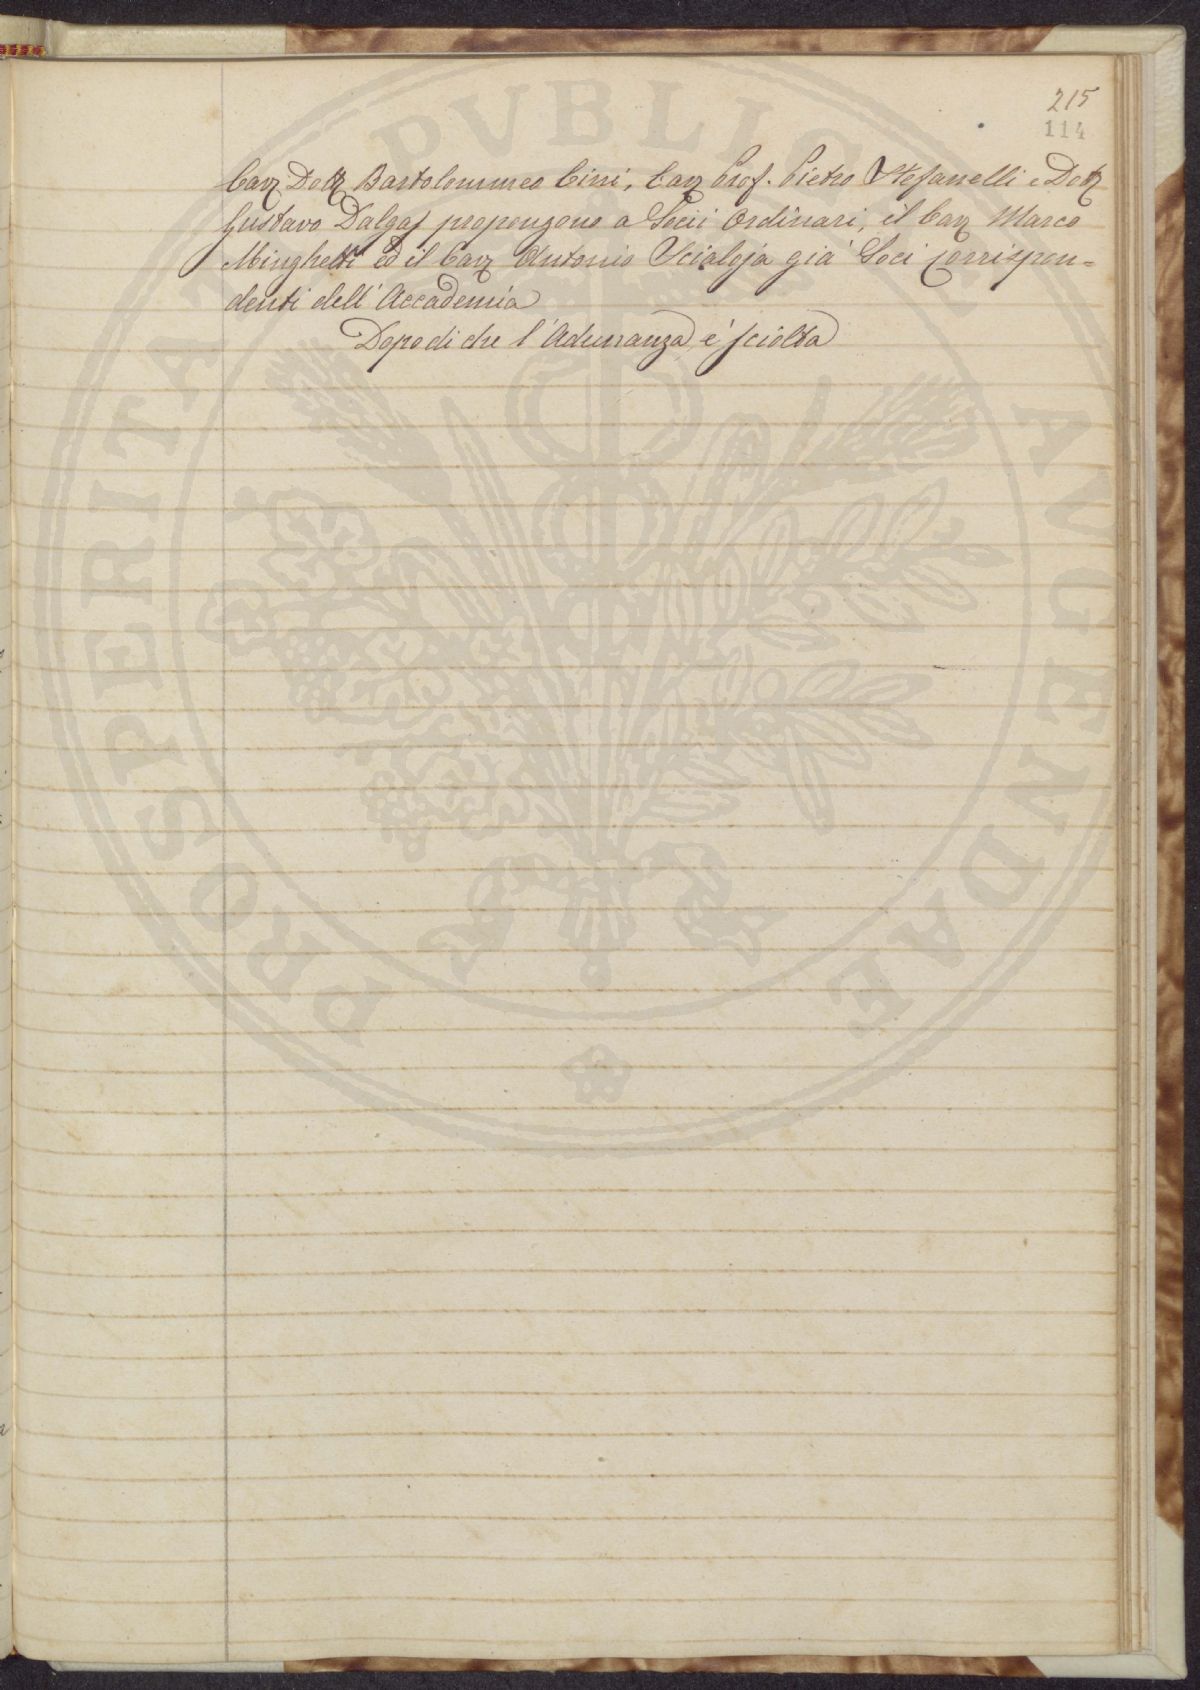 215
114
Cav. Dott. Bartolommeo Cini, Cav. Prof. Pietro Stefanelli e Dott.
Gustavo Dalgas propongono a Socii Ordinari, il Cav. Marco
Minghetti ed il Cav. Antonio Scialoja già Soci corrispon=
denti dell'Accademia
Dopo di che l'Adunanza è sciolta
PROSPERITATI PVBLICAE AVGENDAE